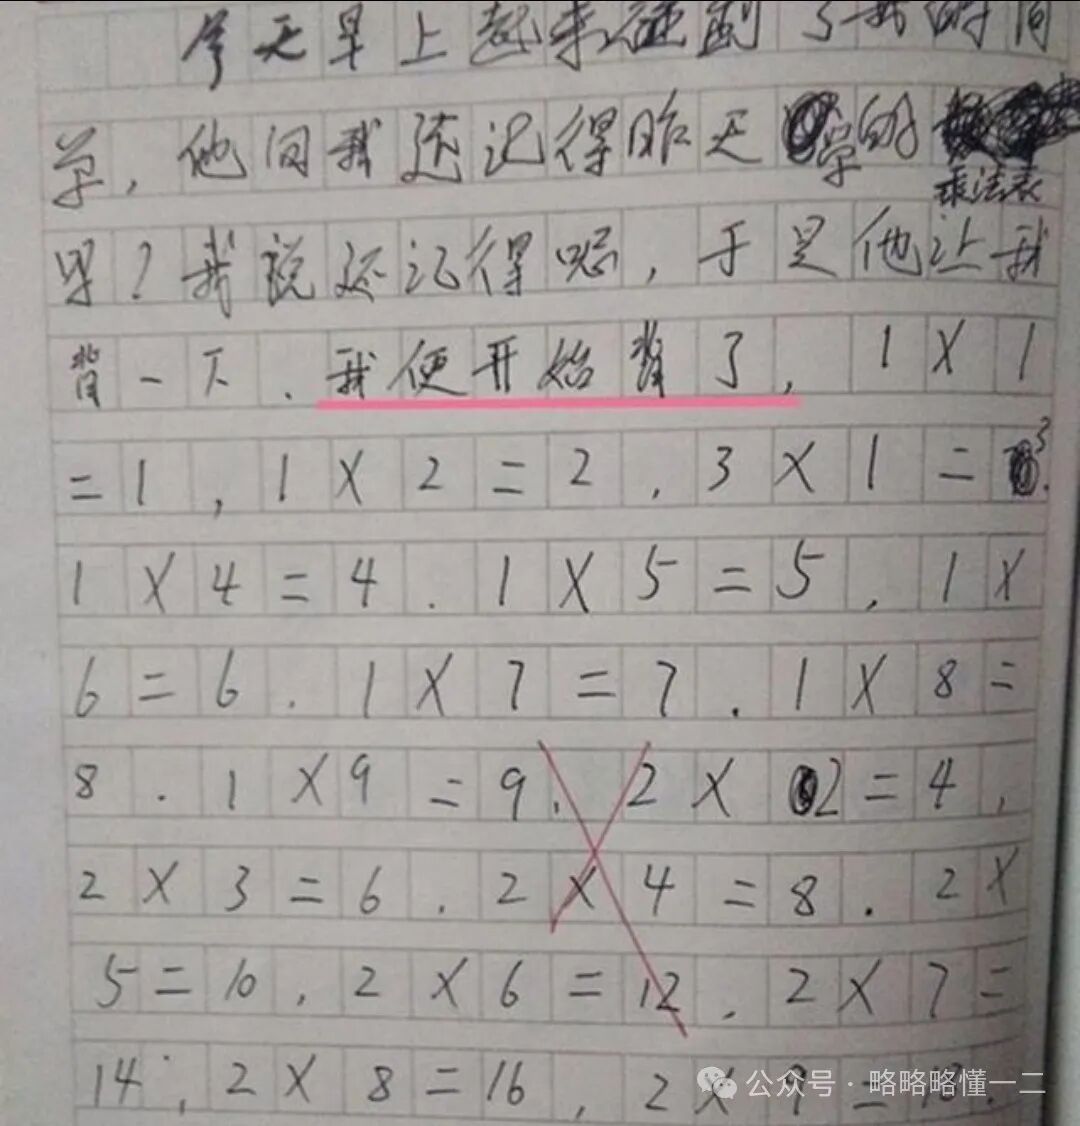 今天早上起来碰到了我的同
学,他问我还记得昨天学的乘法表
吗?我说还记得呢,于是他让我
背一下.我便开始背了,1X1
=1,1X2=2.3X1=3.
1X4=4.1X5=5,1X
6=6.1X7=7.1X8=
8.1X9=9.2X2=4,
2X3=6.2X4=8.2X
5=10,2X6=12.2X7=
14,2X8=16,2X9=18.
公众号·略略略懂一二